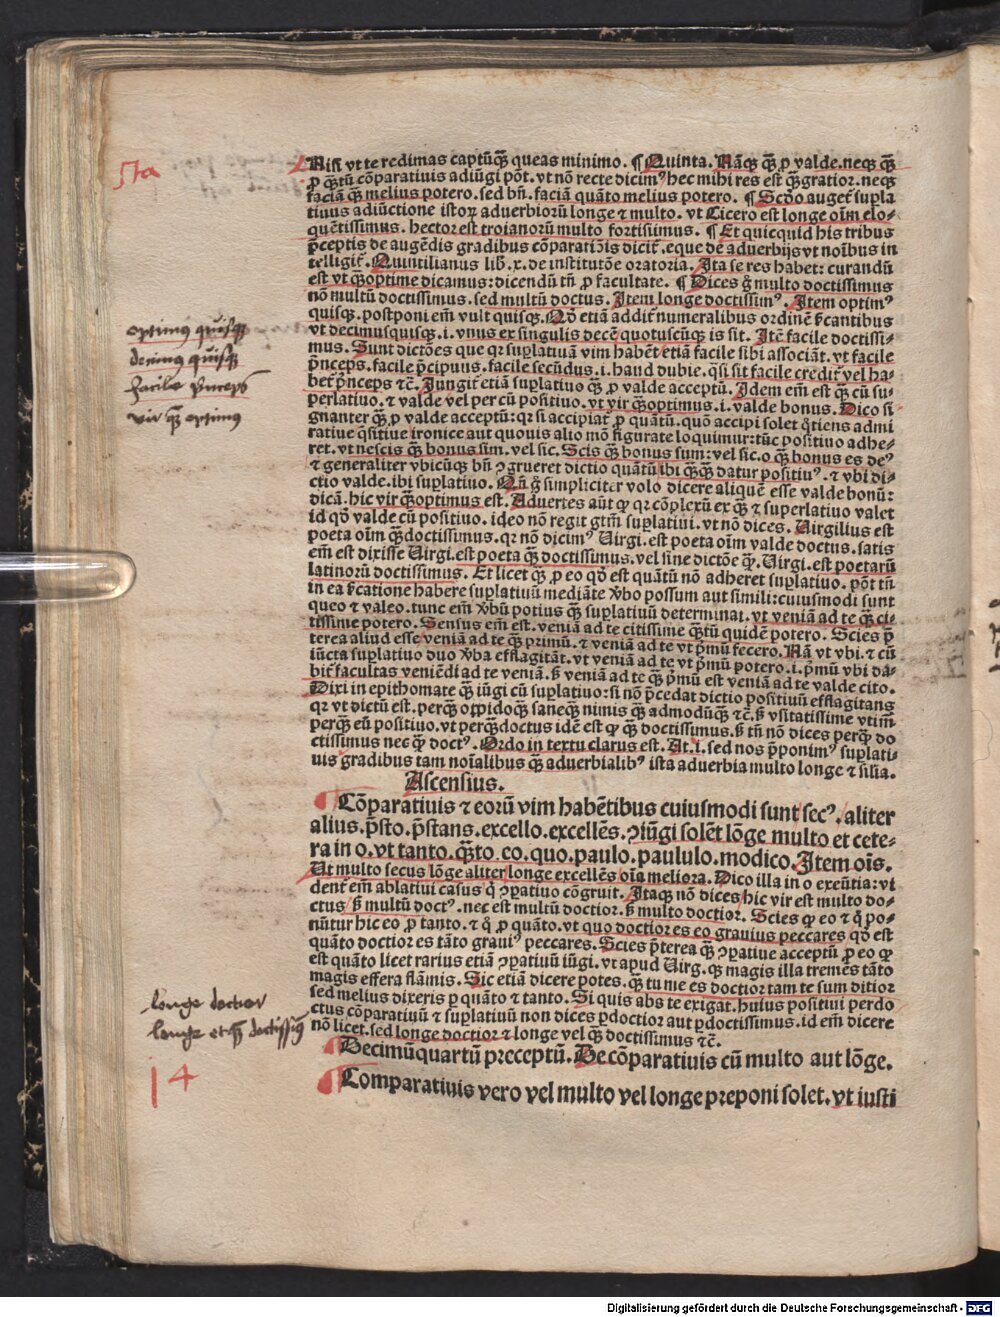 5ta
Nisi vt te redimas captū q̄ȝ queas minimo. ¶ Quinta. Nāqȝ q̄ȝ ꝓ valde. neqȝ q̄ȝ
ꝓ q̄ȝtū cōparatiuis adiūgi pōt. vt nō recte dicimꝰ hec mihi res est q̄ȝ gratior. neqȝ
faciā q̄ȝ melius potero. sed bn̄. faciā quāto melius potero. ¶ Scd̄o auget̄ supla
tiuus adiūctione istoꝝ aduerbiorū longe ⁊ multo. vt Cicero est longe oīm elo-
quētissimus. hector est troianorū multo fortissimus. ¶ Et quicquid his tribus
p̄ceptis de augēdis gradibus cōparatiōis dicit̄. eque de aduerbijs vt noībus in
telligit̄. Quintilianus lib̄. x. de institutōe oratoria. Ita se res habet: curandū
est vt q̄ȝoptime dicamus: dicendū tn̄ ꝓ facultate. ¶ Dices g̊ multo doctissimus
nō multū doctissimus. sed multū doctus. Item longe doctissimꝰ. Item optimꝰ
quisqȝ. postponi em̄ vult quisqȝ. Nō etiā addit̄ numeralibus ordinē p̄cantibus
vt decimusquisqȝ. i. vnus ex singulis decē quotuscūqȝ is sit. Itē facile doctissi-
mus. Sunt dictōes que qꝛ suplatiuā vim habēt etiā facile sibi associāt. vt facile
p̄nceps. facile p̄cipuus. facile secūdus. i. haud dubie. q̄si sit facile credit̄ vel ha-
bet̄ p̄nceps ⁊c̄. Iungit̄ etiā suplatius q̄ȝ ꝓ valde acceptū. Idem em̄ est q̄ȝ cū su-
perlatiuo. ⁊ valde vel per cū positiuo. vt vir q̄ȝoptimus. i. valde bonus. Dico si
gnanter q̄ȝ ꝓ valde acceptū: qꝛ si accipiat̄ ꝓ quātū. quō accipi solet q̄tiens admi
ratiue q̄sitiue ironice aut quouis alio mō figurate loquimur: tūc positiuo adhe-
ret. vt nescis q̄ȝ bonus sim. vel sic. Scis q̄ȝ bonus sum: vel sic. o q̄ȝ bonus es deꝰ
⁊ generaliter vbicūqȝ bn̄ ꝯgrueret dictio quātū ibi q̄ȝq̄ȝ datur positiuꝰ. ⁊ vbi di-
ctio valde. ibi suplatiuo. Qn̄ g̊ simpliciter volo dicere aliquē esse valde bonū:
dicā. hic vir q̄ȝoptimus est. Aduertes aūt ꝙ qꝛ cōplexū ex q̄ȝ ⁊ superlatiuo valet
id qd̄ valde cū positiuo. ideo nō regit gtm̄ suplatiui. vt nō dices. Virgilius est
poeta oīm q̄ȝdoctissimus. qꝛ nō dicimꝰ Virgi. est poeta oīm valde doctus. satis
em̄ est dixisse Virgi. est poeta q̄ȝ doctissimus. vel sine dictōe q̄ȝ. Virgi. est poetarū
latinorū doctissimus. Et licet q̄ȝ ꝓ eo qd̄ est quātū nō adheret suplatiuo. pōt tn̄
in ea p̄catione habere suplatiuū mediāte v̄bo possum aut simili: cuiusmodi sunt
queo ⁊ valeo. tunc em̄ v̄bū potius q̄ȝ suplatiuū determinat. vt veniā ad te q̄ȝ ci-
tissime potero. Sensus em̄ est. veniā ad te citissime q̄ȝtū quidē potero. Scies p̄
terea aliud esse veniā ad te q̄ȝ primū. ⁊ veniā ad te vt p̄mū fecero. Nā vt vbi. ⁊ cū
iūcta suplatiuo duo v̄ba efflagitāt. vt veniā ad te vt p̄mū potero. i. p̄mū vbi da-
bit̄ facultas veniēdi ad te veniā. ꝭ veniā ad te q̄ȝ p̄mū est veniā ad te valde cito.
Dixi in epithomate q̄ȝ iūgi cū suplatiuo: si nō p̄cedat dictio positiuū efflagitans
qꝛ vt dictū est. perq̄ȝ oꝑpidoq̄ȝ saneq̄ȝ nimis q̄ȝ admodūq̄ȝ ⁊c̄. ꝭ vsitatissime vtim̄
perq̄ȝ eū positiuo. vt perq̄ȝdoctus idē est qd̄ q̄ȝ doctissimus. ꝭ tn̄ nō dices perq̄ȝ do
ctissimus nec q̄ȝ doctꝰ. Ordo in textu clarus est. At. i. sed nos p̄ponimꝰ suplati-
uis gradibus tam noīalibus q̄ȝ aduerbialibꝰ ista aduerbia multo longe ⁊ silia.
Ascensius.
Cōparatiuis ⁊ eorū vim habētibus cuiusmodi sunt secꝰ. aliter
alius. p̄sto. p̄stans. excello. excellēs. ꝯiūgi solēt lōge multo et cete-
ra in o. vt tanto. q̄ȝto. eo. quo. paulo. paululo. modico. Item oīs.
Vt multo secus lōge aliter longe excellēs oīa meliora. Dico illa in o exeūtia: vi
dent̄ em̄ ablatiui casus q̇ ꝯpatiuo cōgruit. Itaqȝ nō dices hic vir est multo do-
ctus ꝭ multū doctꝰ. nec est multū doctior. ꝭ multo doctior. Scies ꝙ eo ⁊ q̊ po-
nūtur hic eo ꝓ tanto. ⁊ q̊ ꝓ quāto. vt quo doctior es eo grauius peccares qd̄ est
quāto doctior es tāto grauiꝰ peccares. Scies p̄terea q̄ȝ ꝯpatiue acceptū ꝓ eo ꝙ
est quāto licet rarius etiā ꝯpatiuū iūgi. vt apud Virg. qȝ magis illa tremēs tāto
magis effera flāmis. Sic etiā dicere potes. q̄ȝ tu me es doctior tam te sum ditior
sed melius dixeris ꝑ quāto ⁊ tanto. Si quis abs te exigat. huius positiui perdo
ctus cōparatiuū ⁊ suplatiuū non dices ꝑdoctior aut ꝑdoctissimus. id em̄ dicere
nō licet. sed longe doctior ⁊ longe vel q̄ȝ doctissimus ⁊c̄.
Decimūquartū preceptū. De cōparatiuis cū multo aut lōge.
Comparatiuis vero vel multo vel longe preponi solet. vt iusti
optimus quisqȝ
decimus quisqȝ
facile princeps
vir q̄ȝ optimus
longe doctior
longe et q̄ȝ doctissimꝰ
14
Digitalisierung gefördert durch die Deutsche Forschungsgemeinschaft - DFG